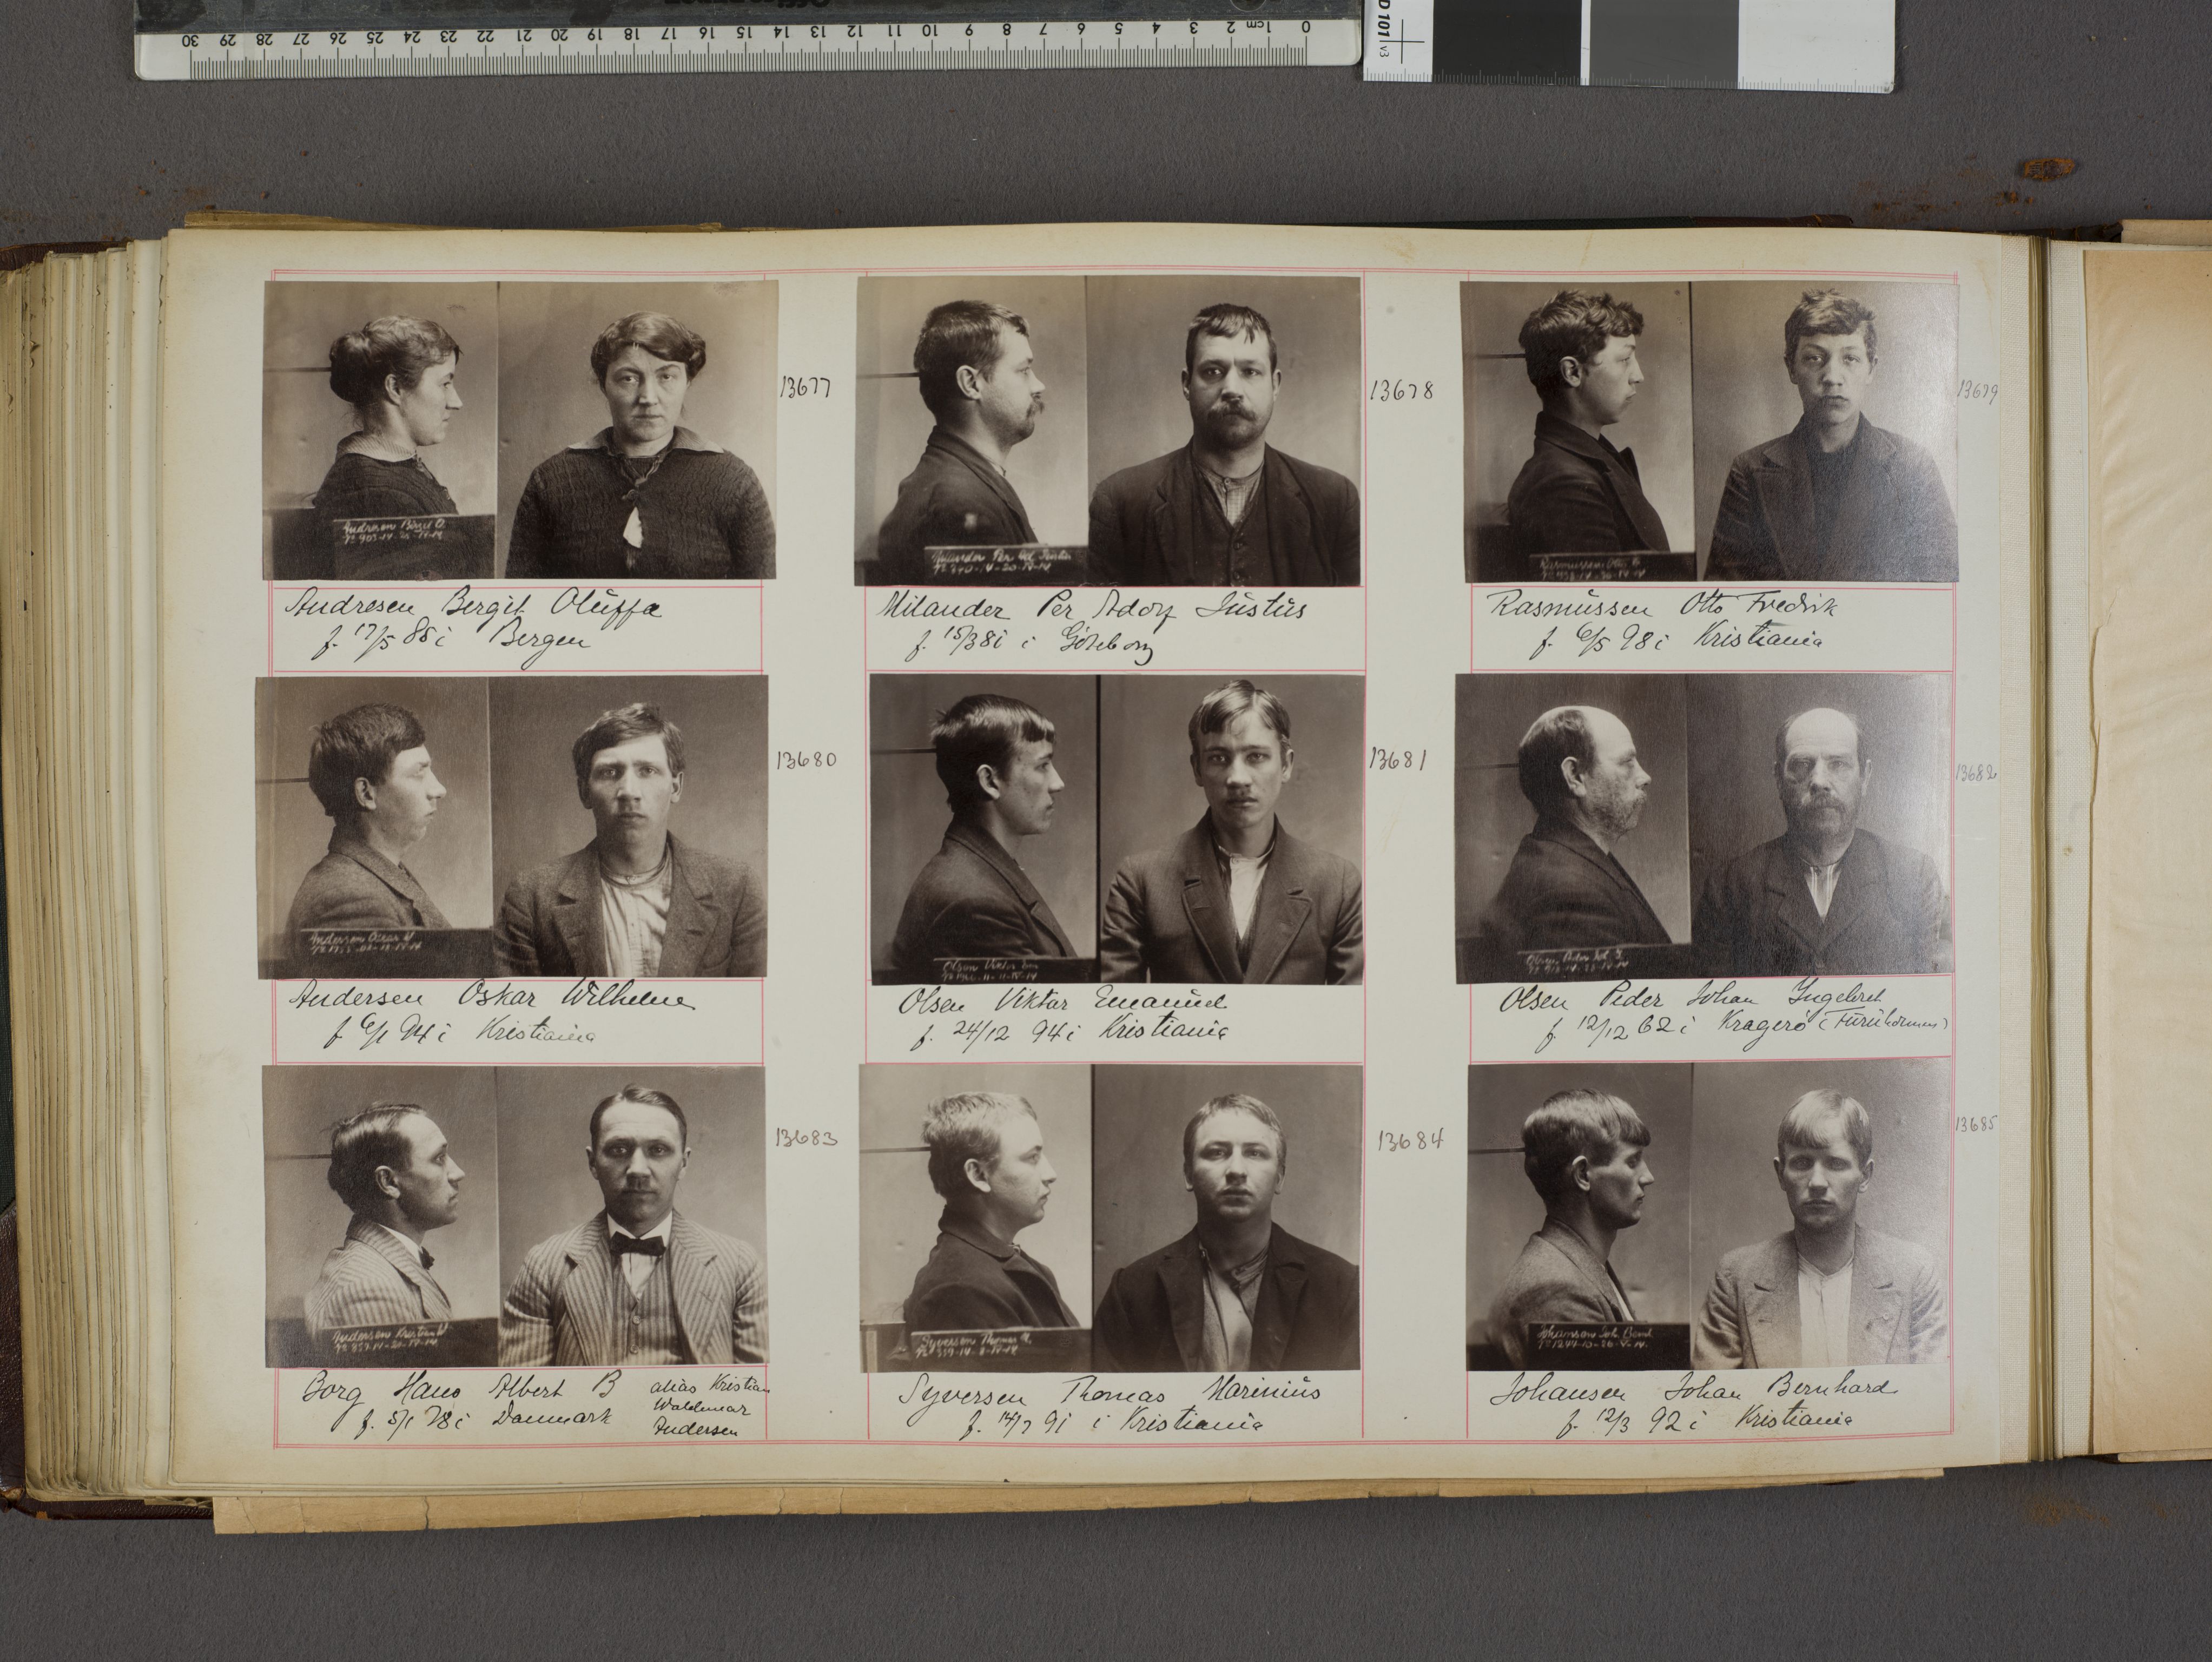 0 1cm 2 3 4 5 6 7 8 9 10 11 12 13 14 15 16 17 18 19 20 21 22 23 24 25 26 27 28 29 30
D 101 v3
13677
Andresen Bergit O.
Andresen Bergit Oluffa
f. 17/5 85 i Bergen
13678
Milander Per Ad. Justus
Milander Per Adolf Justus
f. 15/3 81 i Göteborg
13679
Rasmussen Otto F.
Rasmussen Otto Fredrik
f. 6/5 98 i Kristiania
13680
Andersen Oscar W
Andersen Oskar Wilhelm
f 6/1 94 i Kristiania
13681
Olsen Viktor Em
Olsen Viktor Emanuel
f. 24/12 94 i Kristiania
13682
Olsen Peder Joh. I.
Olsen Peder Johan Ingebret
f. 12/12 62 i Kragerø (Furuholmen)
13683
Andersen Kristian W
Borg Hans Albert B alias Kristian
Waldemar
Andersen
f. 5/1 78 i Danmark
13684
Syversen Thomas M.
Syversen Thomas Marinius
f. 14/7 91 i Kristiania
13685
Johansen Joh. Bernh
N° 1244-10-20-4-14.
Johansen Johan Bernhard
f. 12/3 92 i Kristiania